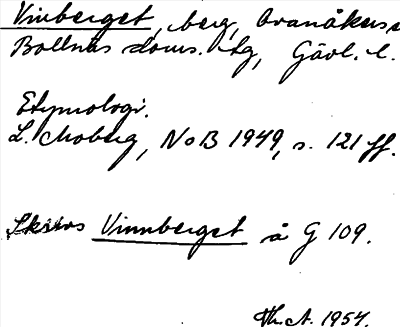 Vinberget, berg, Ovanåkers s
Bollnäs doms. tg, Gävl. l.
Etymologi.
L. Moberg, NoB 1949, s. 121 ff.
Skrivs Vinnberget å G 109.
Th. A. 1954.